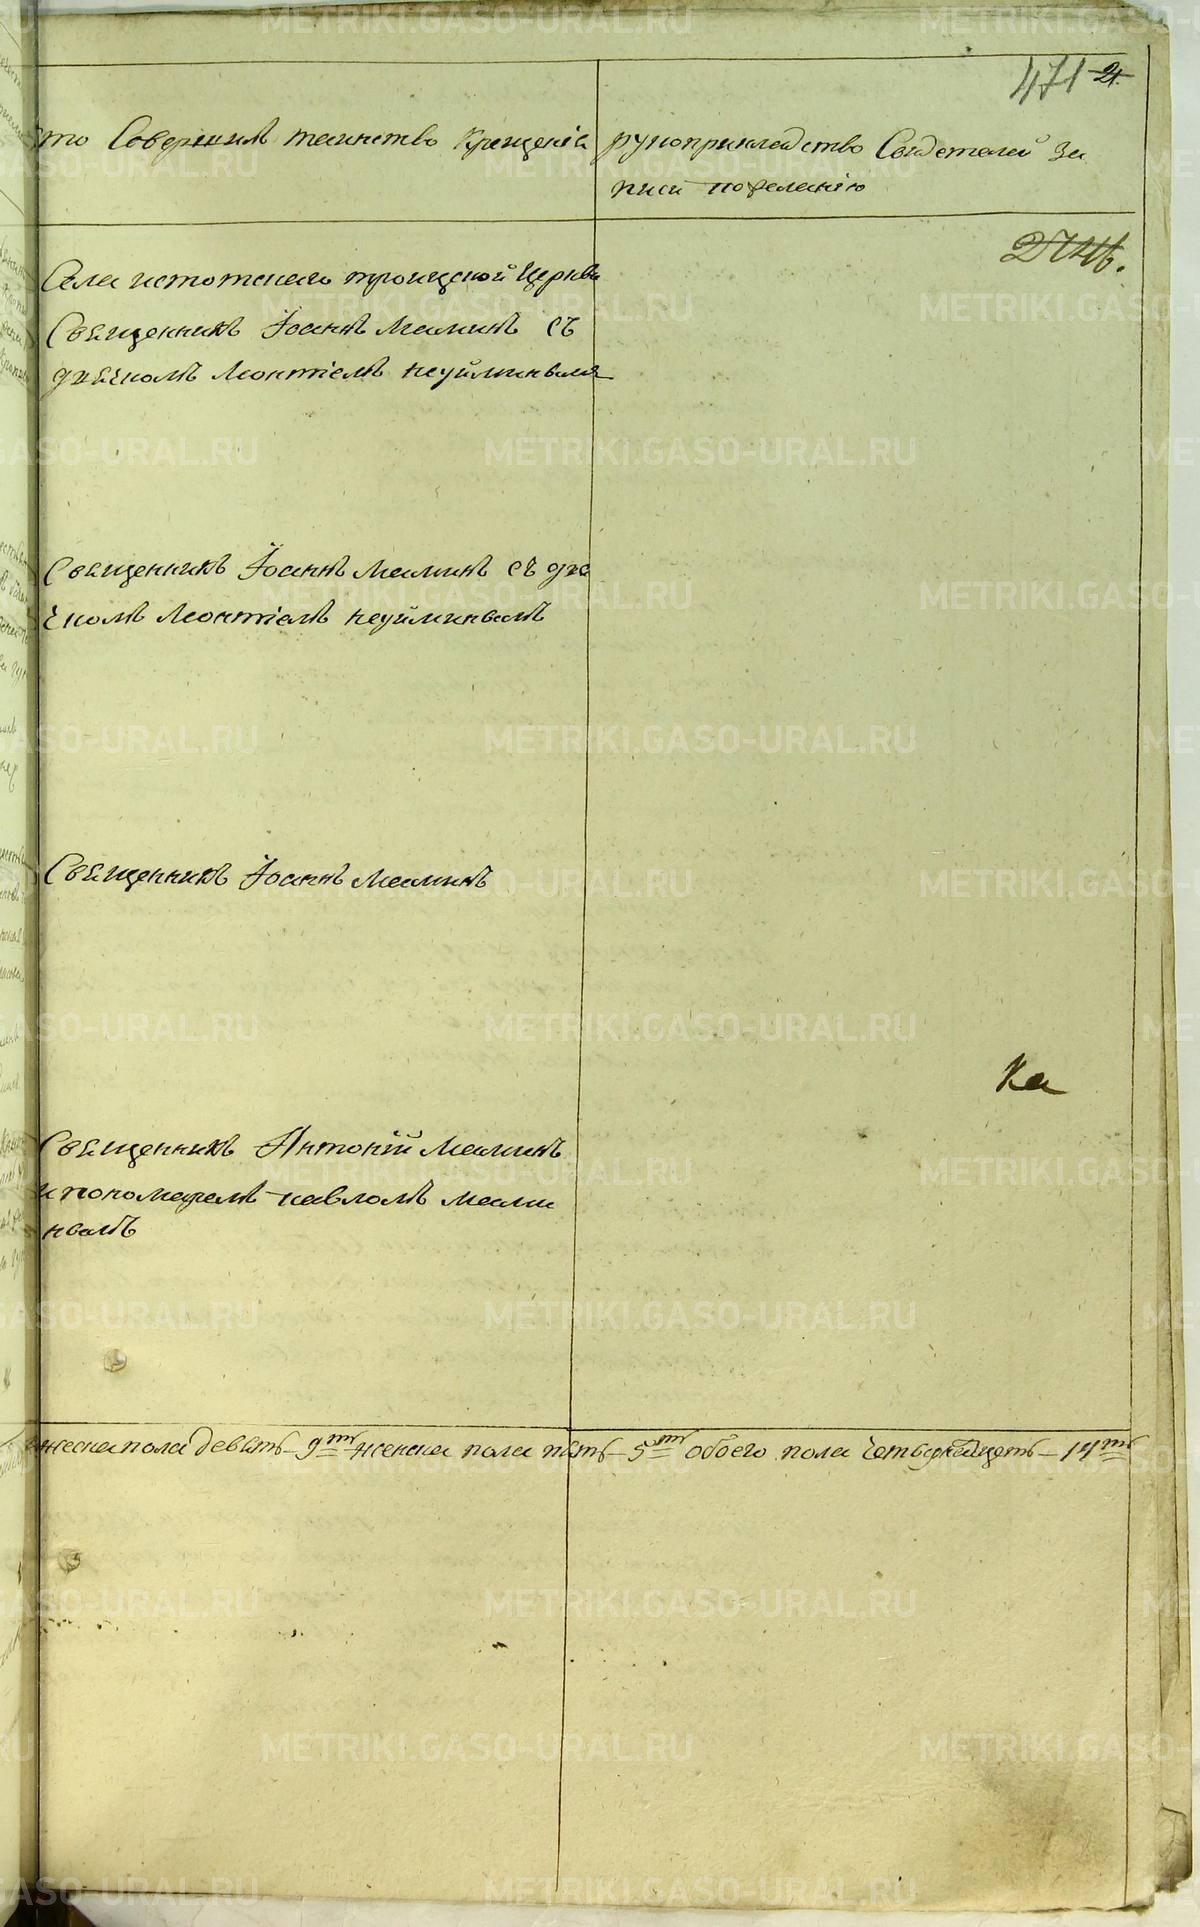 471 21
то Совершилъ таинство Крещенія
рукоприкладство Свидетелей За
писи пожеланію
Села истокскаго троицской Церкви
Священникъ Іоаннъ Маминъ съ
дьячкомъ Леонтіемъ неуйминымъ
Священникъ Іоаннъ Маминъ съ дья
чкомъ Леонтіемъ неуйминымъ
Священникъ Іоаннъ Маминъ
Ка
Священникъ Антоній Маминъ
и пономаремъ павломъ мами
нымъ
жеска пола девять 9ть женска пола пять 5ть обоего пола четырнатцеть 14ть
METRIKI.GASO-URAL.RU